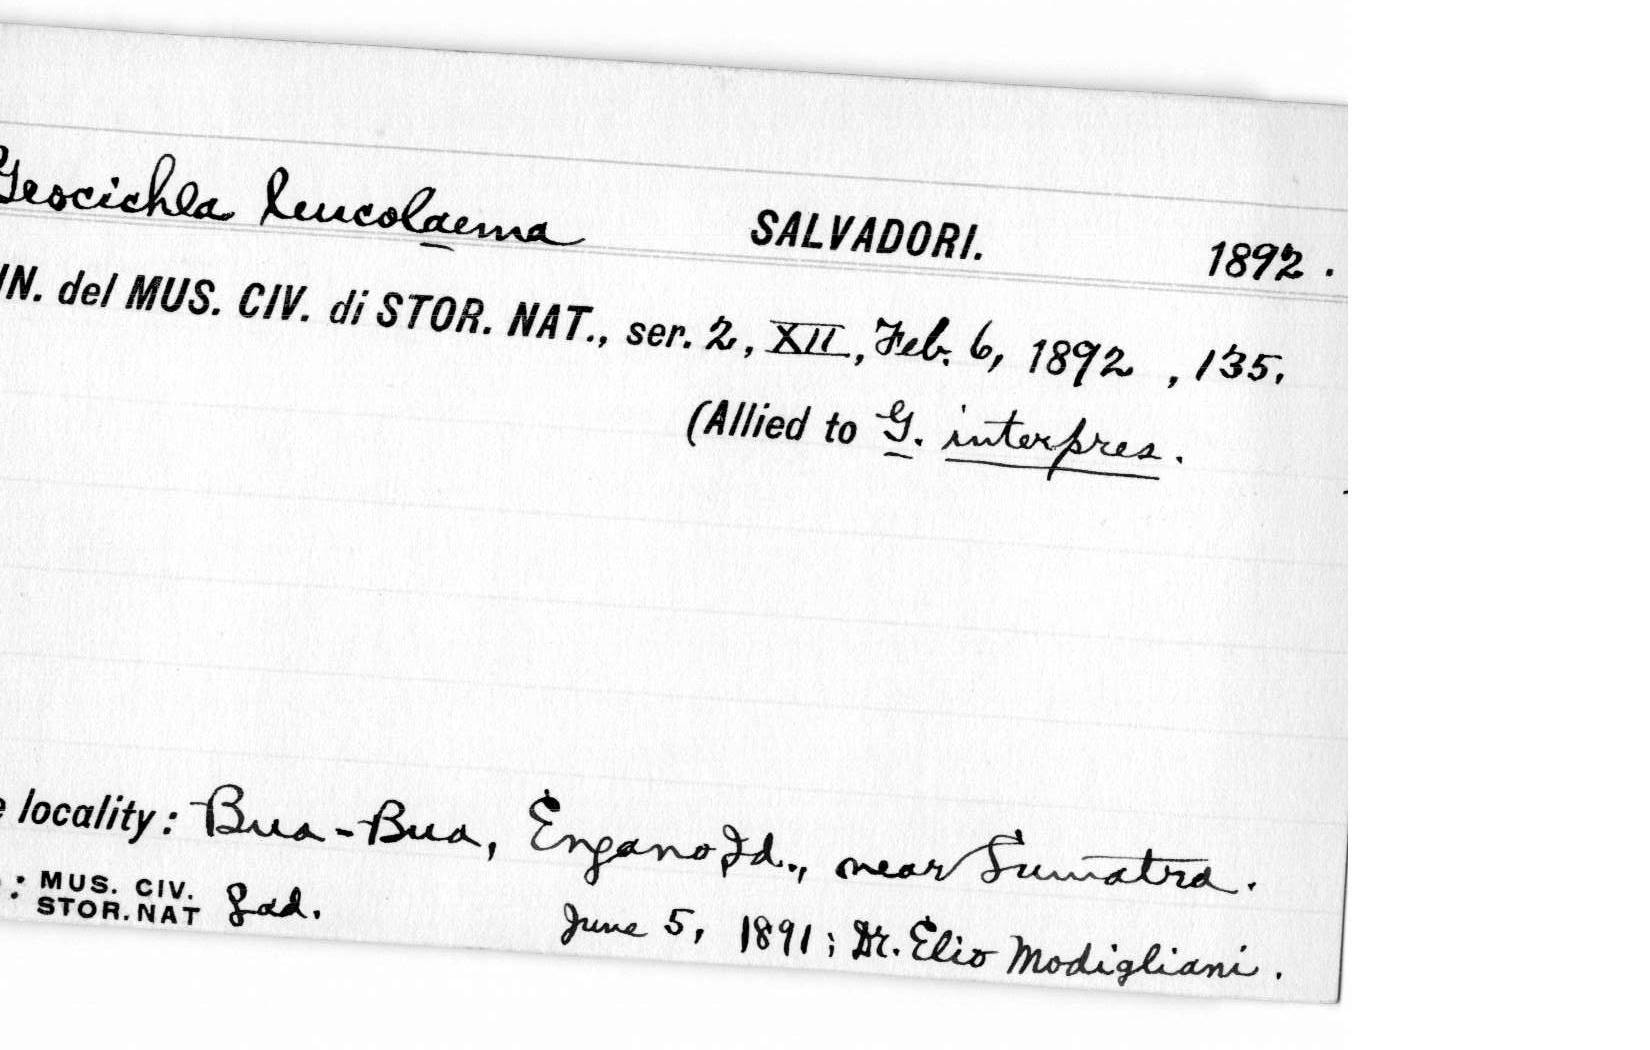 Geocichla leucolaema SALVADORI. 1892.
IN. del MUS. CIV. di STOR. NAT., ser. 2, XII, Feb. 6, 1892, 135.
(Allied to G. interpres.
e locality: Bua-Bua, Engano Id., near Sumatra.
: MUS. CIV. STOR. NAT ad. June 5, 1891; Dr. Elio Modigliani.